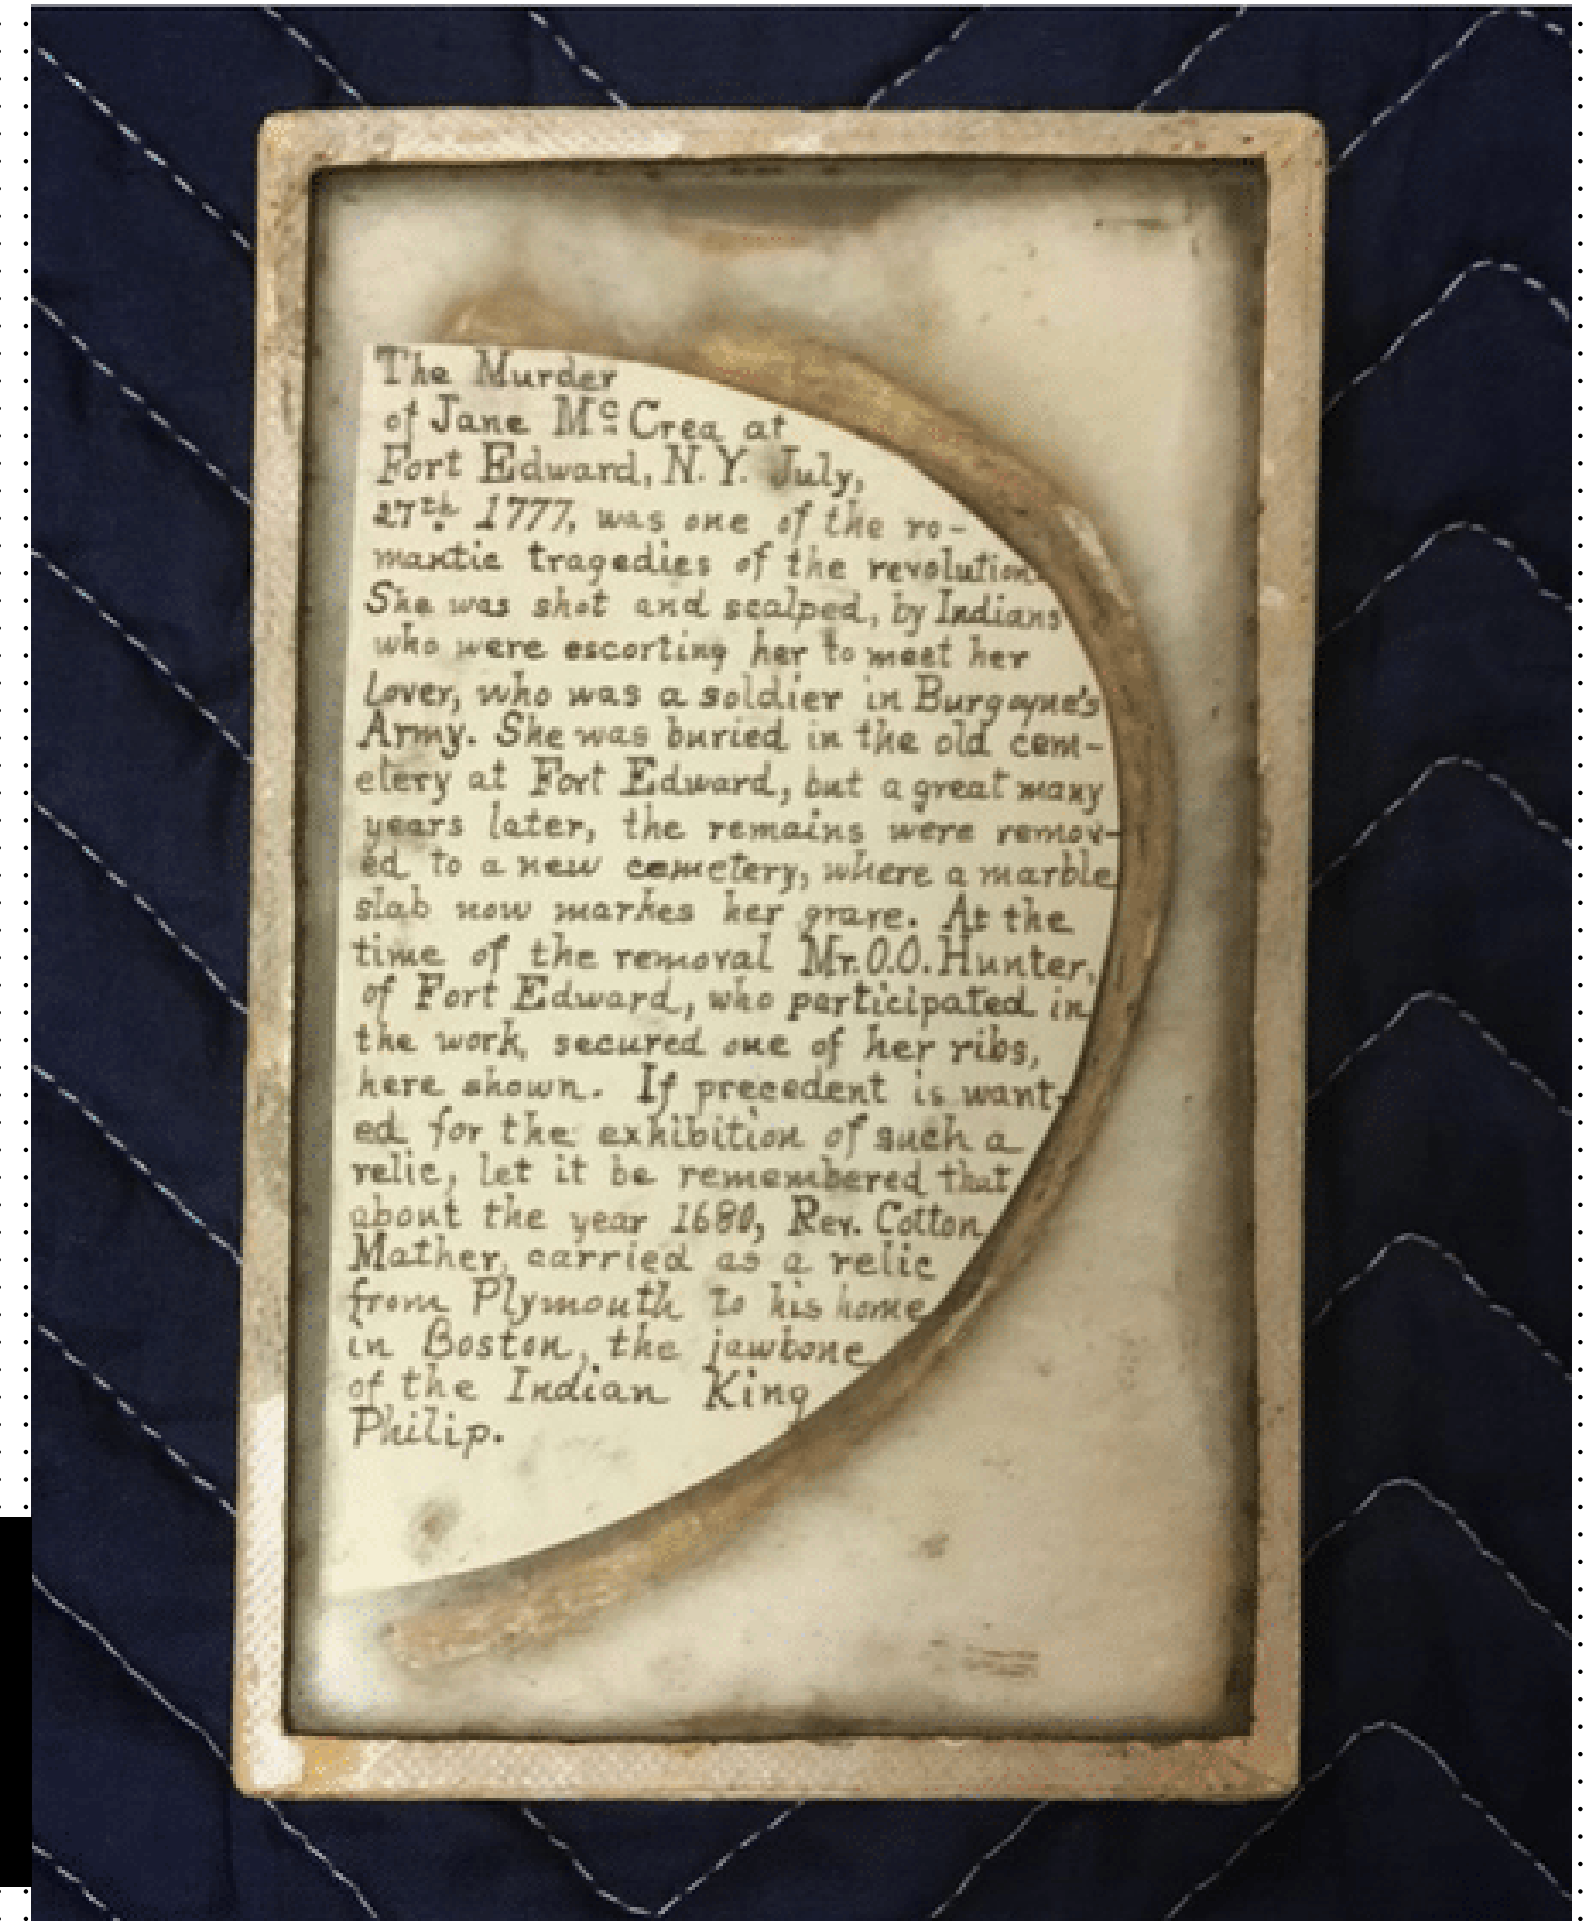 The Murder
of Jane Mc Crea at
Fort Edward, N.Y. July,
27th 1777, was one of the ro-
mantic tragedies of the revolution.
She was shot and scalped, by Indians
who were escorting her to meet her
Lover, who was a soldier in Burgoyne's
Army. She was buried in the old cem-
etery at Fort Edward, but a great many
years later, the remains were remov-
ed to a new cemetery, where a marble
slab now markes her grave. At the
time of the removal Mr. O.O. Hunter,
of Fort Edward, who participated in
the work, secured one of her ribs,
here shown. If precedent is want-
ed for the exhibition of such a
relic, let it be remembered that
about the year 1680, Rev. Cotton
Mather, carried as a relic
from Plymouth to his home
in Boston, the jawbone
of the Indian King
Philip.